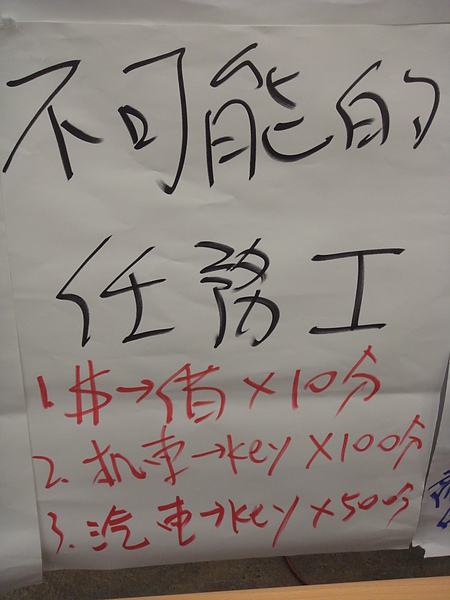 不可能的
任務I
1. $→值×10分
2. 机車→key×100分
3. 汽車→key×500分